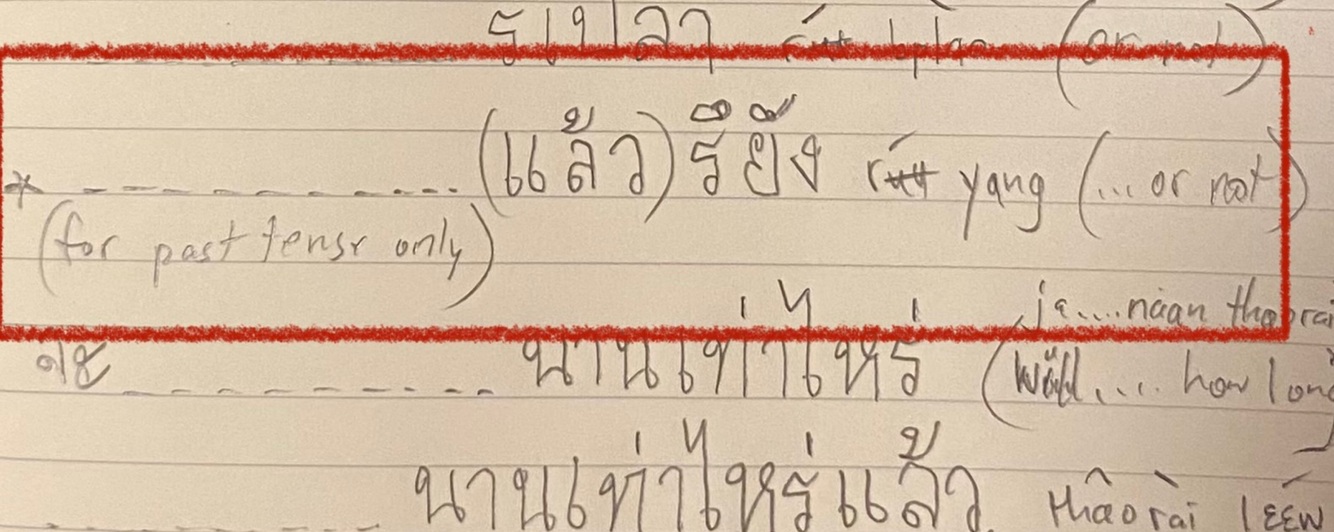 (or not)
* ------------ (แล้ว) รึยัง rʉ́ʉ yang (... or not)
(for past tense only)
ja....naan thaorai
จะ ---------- นานเท่าไหร่ (will .... how long
---------- นานเท่าไหร่แล้ว thâorài lɛ́ɛw